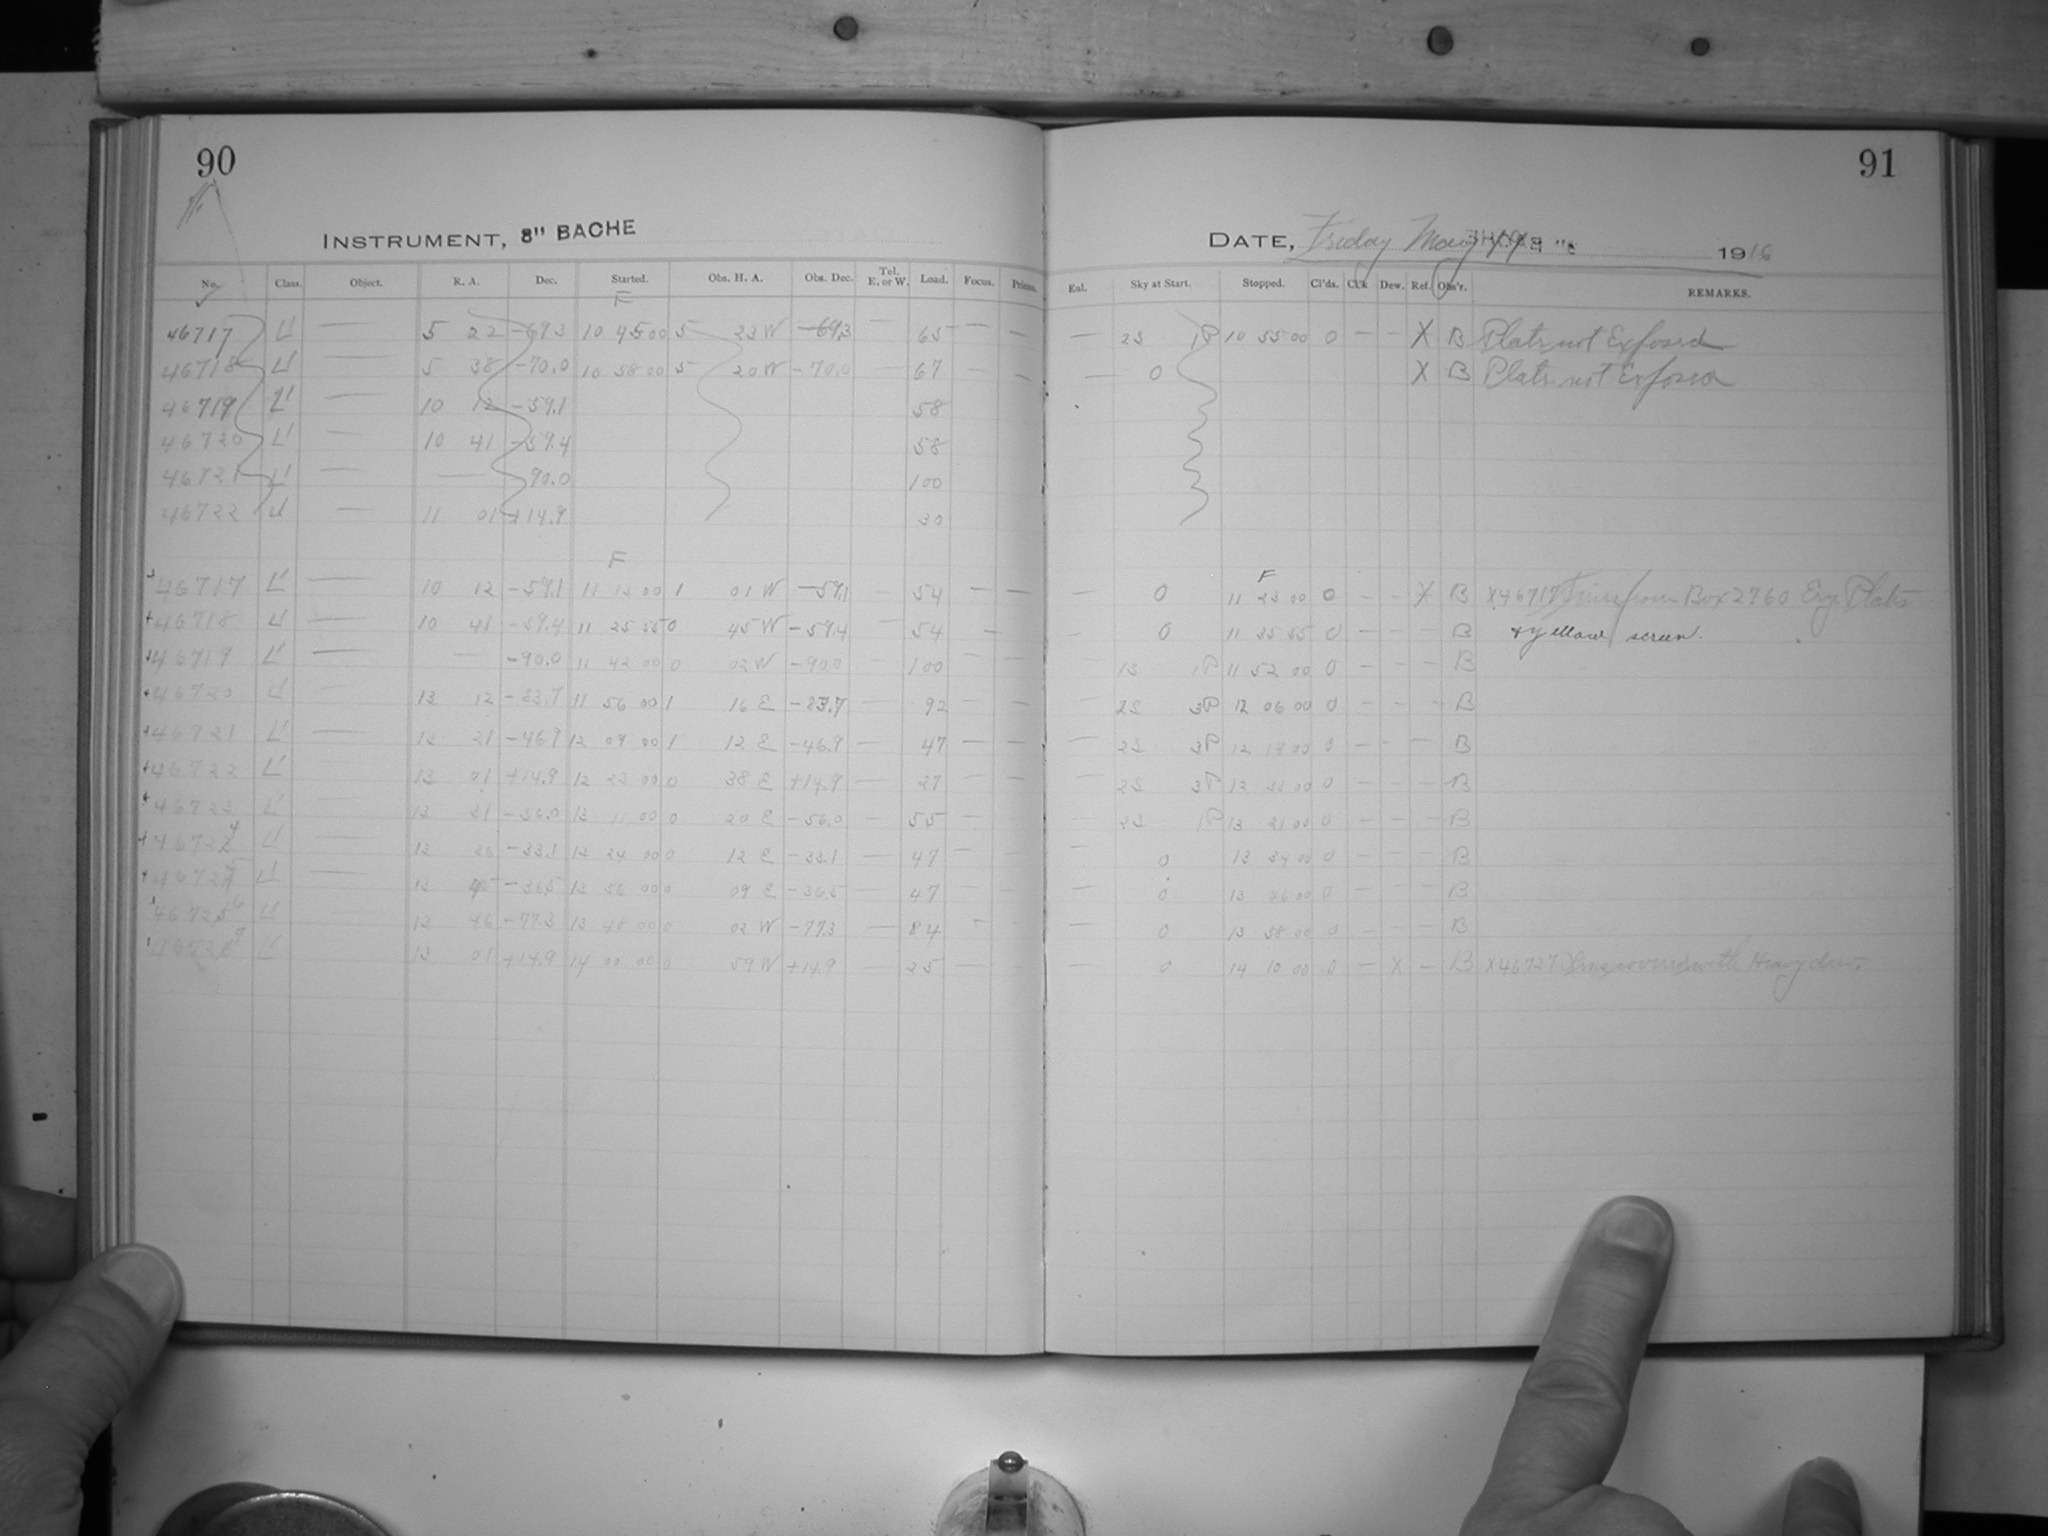 90
91
INSTRUMENT, 8" BACHE
DATE, Friday May 1916
No. Class. Object. R. A. Dec. Started. Obs. H. A. Obs. Dec. Tel. E. or W. Load. Focus. Prisms. Enl. Sky at Start. Stopped. Cl'ds. Cl'k Dew. Ref. Obs'r. REMARKS.
F
46717 L' — 5 22 -69.3 10 45 00 5 23 W -69.3 — 65 — — — 2S 1P 10 55 00 0 — — X B Plate not Exposed
46718 L' — 5 38 -70.0 10 58 00 5 20 W -70.0 — 67 — — — 0 X B Plate not Exposed
46719 L' — 10 12 -59.1 58
46720 L' — 10 41 -59.4 58
46721 L' — — -90.0 100
46722 L' — 11 01 +14.9 30
F F
46717 L' — 10 12 -59.1 11 13 00 1 01 W -59.1 54 — — — 0 11 23 00 0 — — X B X46717 from Box 2760 Plates
46718 L' — 10 41 -59.4 11 25 55 0 45 W -59.4 — 54 — 0 11 35 55 0 — — — B + yellow screen.
46719 L' — — -90.0 11 42 00 0 02 W -90.0 — 100 — — — 1S 1P 11 52 00 0 — — — B
46720 L' — 13 12 -23.7 11 56 00 1 16 E -23.7 — 92 — — — 2S 3P 12 06 00 0 — — — B
46721 L' — 13 21 -46.9 12 09 00 1 12 E -46.9 — 47 — — — 2S 3P 12 19 00 0 — — — B
46722 L' — 13 01 +14.9 12 22 00 0 38 E +14.9 — 27 — — — 2S 3P 12 32 00 0 — — — B
46723 L' — 13 31 -56.0 13 11 00 0 20 E -56.0 — 55 — — — 2S 1P 13 21 00 0 — — — B
46724 L' — 13 36 -33.1 13 24 00 0 12 E -33.1 — 47 — — — 0 13 34 00 0 — — — B
46725 L' — 13 45 -36.5 13 36 00 0 09 E -36.5 — 47 — — — 0 13 46 00 0 — — — B
46726 L' — 13 46 -77.3 13 48 00 0 02 W -77.3 — 84 — — — 0 13 58 00 0 — — — B
46727 L' 13 01 +14.9 14 00 00 0 59 W +14.9 — 25 — — — 0 14 10 00 0 — X — B X46727 covered with Heavy dew.